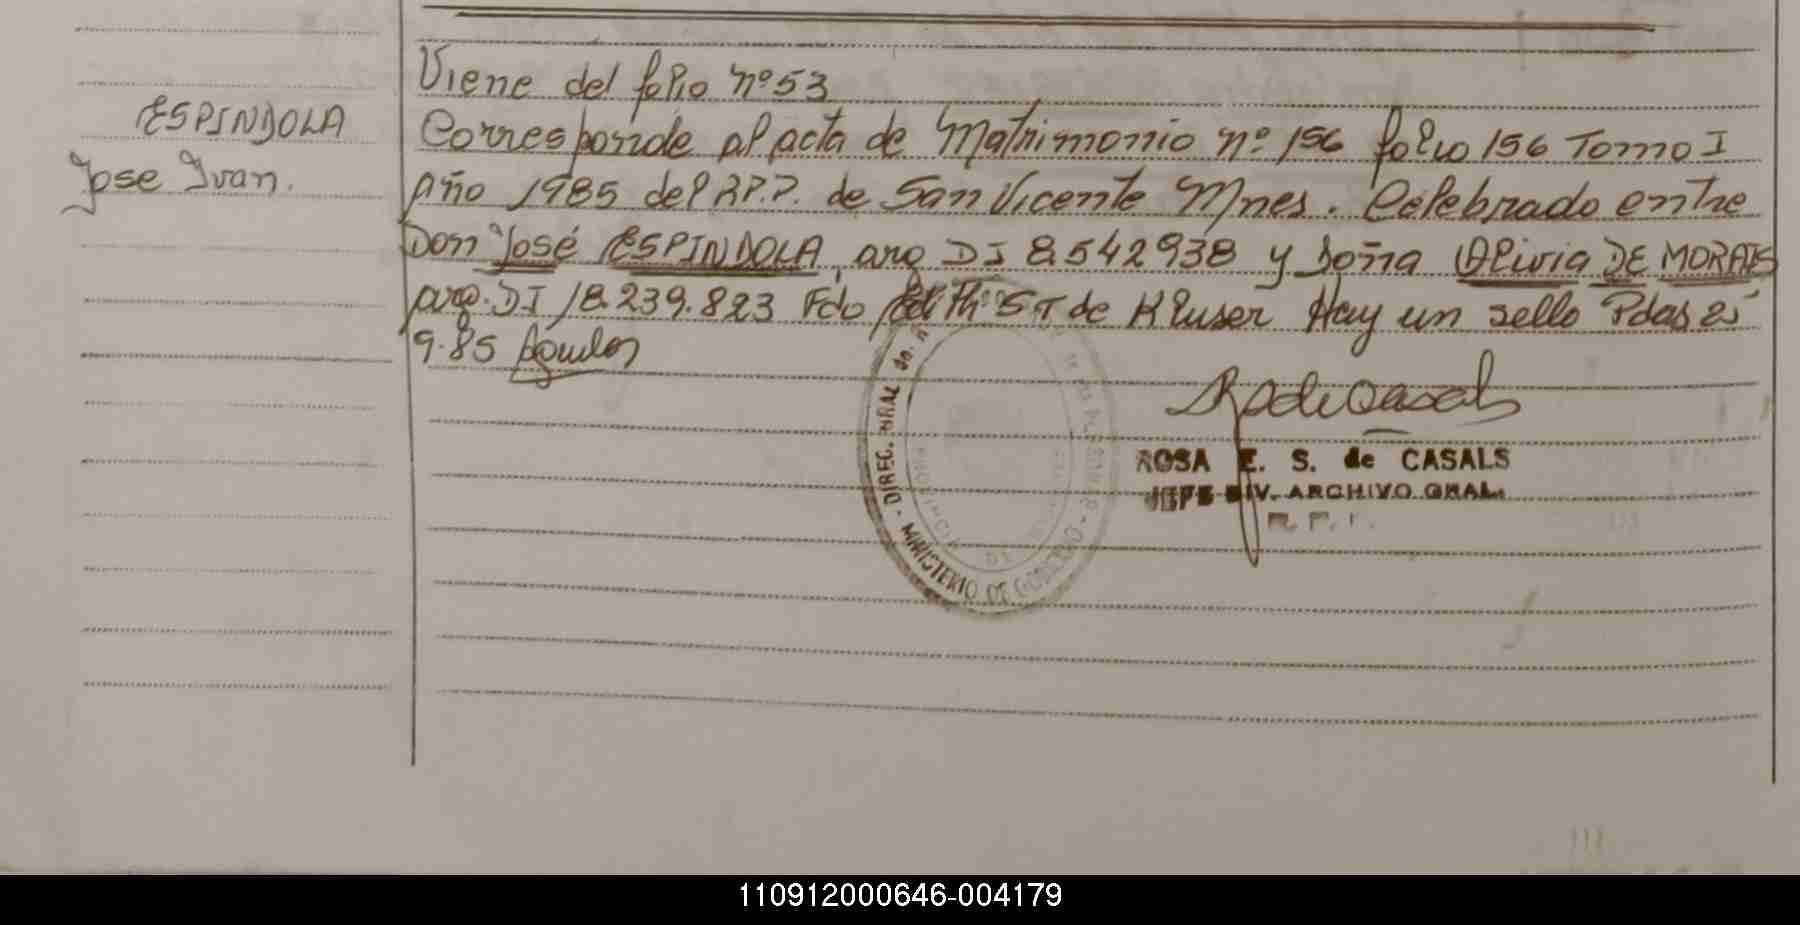 ESPINDOLA
Jose Ivan.
Viene del folio nº 53
Corresponde al acta de Matrimonio nº 156 folio 156 Tomo I
año 1985 del R.P.P. de San Vicente Mnes. Celebrado entre
Don José ESPINDOLA, arg DI 8.542938 y Doña Olivia DE MORAIS
arg. DI 18.239.823 Fdo Edith S T de Kluser Hay un sello Pdas 25
9.85
ROSA E. S. de CASALS
JEFE DIV. ARCHIVO GRAL.
R. P. P.
DIREC. GRAL de
MINISTERIO DE GOBIERNO
PROVINCIA DE
110912000646-004179